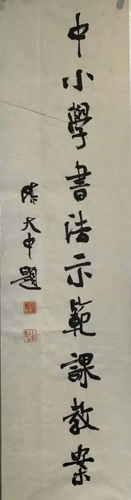 中小學書法示範課教案
陈大中題